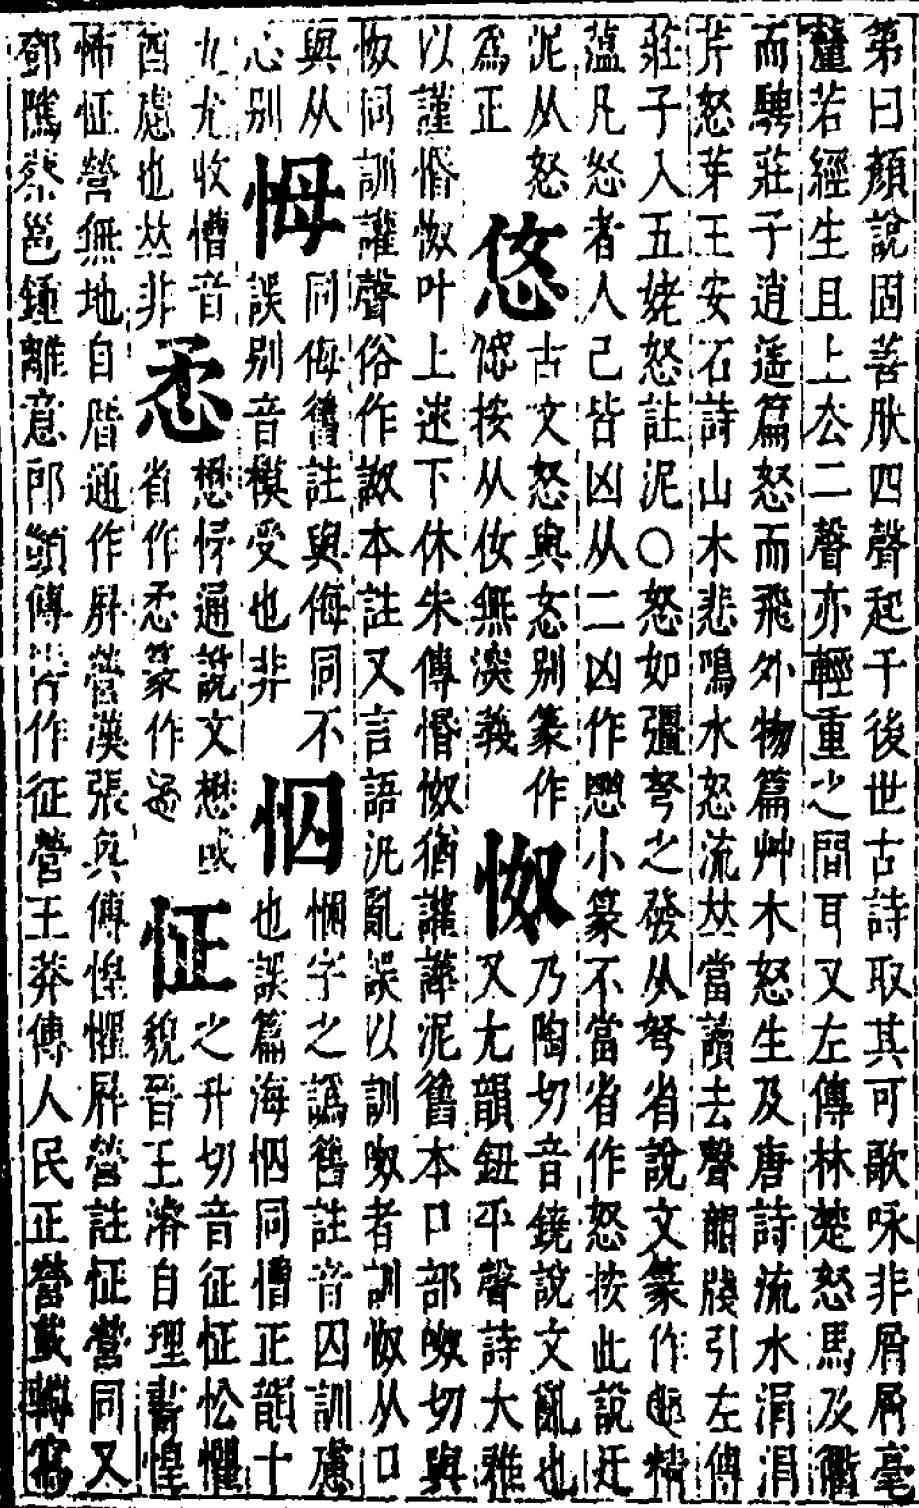 第曰顏說固善肰四聲起于後世古詩取其可歌咏非屑屑毫
釐若經生且上厺二聲亦輕重之間耳又左傳林楚怒馬及衢
而騁莊子逍遙篇怒而飛外物篇艸木怒生及唐詩流水涓涓
芹怒芽王安石詩山木悲鳴水怒流𠀤當讀去聲韻牋引左傳
莊子入五姥怒註泥○怒如彊弩之發从弩省說文篆作
薀凡怒者人己皆凶从二凶作小篆不當省作怒按此說迂
泥从怒
爲正
古文怒與恣别篆作
按从無深義
怓
乃陶切音鐃說文亂也
又尤韻鈕平聲詩大雅
以謹惛怓叶上逑下休朱傳惛怓猶讙譁泥舊本口部呶切與
怓同訓讙聲俗作詉本註又言語汎亂誤以訓呶者訓怓从口
與从
心别
同侮舊註與侮同不
誤别音模受也非
字之譌舊註音囚訓慮
也誤篇海同慒正韻十
九尤收慒音
酋慮也𠀤非
懋通說文懋或
省作篆作
怔
之升切音征怔忪懼
貌晉王濬自理書惶
怖怔營無地自厝通作屏營漢張奐傳惶懼屏營註怔營同又
鄧騭蔡邕鍾離意郎顗傳皆作征營王莽傳人民正營轉寫